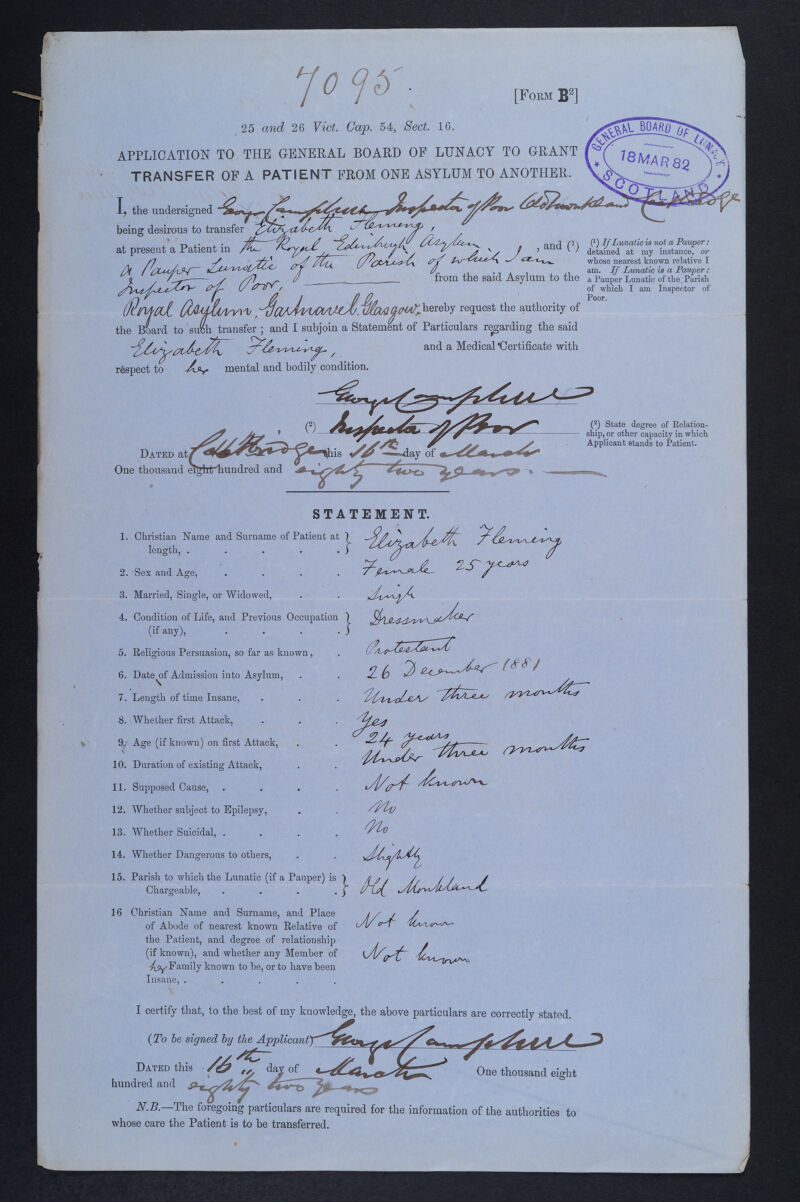 7095.
[FORM B²]
25 and 26 Vict. Cap. 54, Sect. 16.
GENERAL BOARD OF LUNACY
18 MAR 82
SCOTLAND
APPLICATION TO THE GENERAL BOARD OF LUNACY TO GRANT
TRANSFER OF A PATIENT FROM ONE ASYLUM TO ANOTHER.
I, the undersigned George Campbell Inspector of Poor Old Monkland Coatbridge
being desirous to transfer Elizabeth Fleming,
at present a Patient in the Royal Edinburgh Asylum, and (¹)
a Pauper Lunatic of the Parish of which I am
Inspector of Poor, from the said Asylum to the
Royal Asylum, Gartnavel, Glasgow, hereby request the authority of
the Board to such transfer; and I subjoin a Statement of Particulars regarding the said
Elizabeth Fleming, and a Medical Certificate with
respect to her mental and bodily condition.
(¹) If Lunatic is not a Pauper:
detained at my instance, or
whose nearest known relative I
am. If Lunatic is a Pauper:
a Pauper Lunatic of the Parish
of which I am Inspector of
Poor.
George Campbell
(²) Inspector of Poor
(²) State degree of Relation-
ship, or other capacity in which
Applicant stands to Patient.
DATED at Coatbridge this 16th day of March
One thousand eight hundred and eighty two years.
STATEMENT.
1. Christian Name and Surname of Patient at
length, . . . . . Elizabeth Fleming
2. Sex and Age, . . . . Female 25 years
3. Married, Single, or Widowed, . . Single
4. Condition of Life, and Previous Occupation
(if any), . . . . Dressmaker
5. Religious Persuasion, so far as known, . Protestant
6. Date of Admission into Asylum, . . 26 December 1881
7. Length of time Insane, . . . Under three months
8. Whether first Attack, . . . Yes
9. Age (if known) on first Attack, . . 24 years
10. Duration of existing Attack, . . Under three months
11. Supposed Cause, . . . . Not known
12. Whether subject to Epilepsy, . . No
13. Whether Suicidal, . . . . No
14. Whether Dangerous to others, . . Slightly
15. Parish to which the Lunatic (if a Pauper) is
Chargeable, . . . . . Old Monkland
16 Christian Name and Surname, and Place
of Abode of nearest known Relative of Not known
the Patient, and degree of relationship
(if known), and whether any Member of Not known
her Family known to be, or to have been
Insane, . . . . .
I certify that, to the best of my knowledge, the above particulars are correctly stated.
(To be signed by the Applicant) George Campbell
DATED this 16th day of March One thousand eight
hundred and eighty two years
N.B.—The foregoing particulars are required for the information of the authorities to
whose care the Patient is to be transferred.